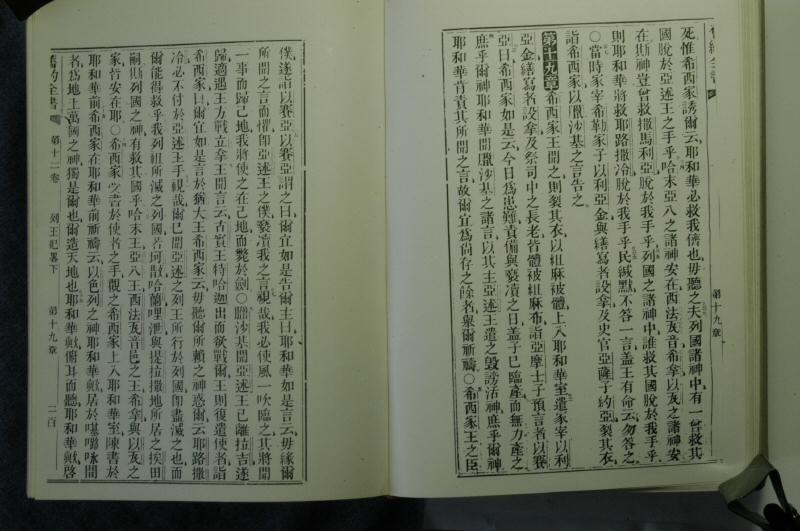 舊約全書
第十九章
死惟希西家誘爾云耶和華必救我儕也毋聽之夫列國諸神中有一曾救其
國脫於亞述王之手乎哈末亞八之諸神安在西法瓦音希拿以瓦之諸神安
在斯神豈曾救撒馬利亞脫於我手乎列國之諸神中誰救其國脫於我手乎
則耶和華將救耶路撒冷脫於我手乎民緘默不答一言盖王有命云勿答之
〇當時家宰希勒家子以利亞金與繕寫者設拿及史官亞薩子約亞裂其衣
詣希西家以臘沙基之言告之
第十九章希西家王聞之則裂其衣以組麻被體上入耶和華室遣家宰以利
亞金繕寫者設拿及祭司中之長老皆體被組麻布詣亞摩士子預言者以賽
亞曰希西家如是云今日爲患難責備與褻瀆之日盖子已臨產而無力產之
庶乎爾神耶和華聞臘沙基之諸言以其主亞述王遣之毀謗活神庶乎爾神
耶和華肯責其所聞之言故爾宜爲尙存之餘者舉爾祈禱〇希西家王之臣
僕遂詣以賽亞以賽亞謂之曰爾宜如是告爾主曰耶和華如是言云毋緣爾
所聞之言而懼卽亞述王之僕褻瀆我之言視哉我必使風一吹臨之其將聞
一事而歸己地我將使之在己地而斃於劍〇臘沙基聞亞述王已離拉吉遂
歸適遇王方戰立拿王聞言云古實王特哈迦出而欲戰爾王則復遣使者詣
希西家曰爾宜如是言於猶大王希西家云毋聽爾所賴之神惑爾云耶路撒
冷必不付於亞述王手視哉爾已聞亞述之列王所行於列國卽盡滅之也而
爾能得救乎我列祖所滅之列國若坷散哈蘭哩泄與提拉撒地所居之挨田
嗣厮列國之神有救其國乎哈末王亞八王西法瓦音邑之王希拿與以瓦之
家皆安在耶〇希西家受書於使者之手觀之希西家上入耶和華室陳書於
耶和華前希西家在耶和華前祈禱云以色列之神耶和華歟居於𠼻𡀔咏間
者爲地上萬國之神獨是爾也爾造天地也耶和華歟俯耳而聽耶和華歟啓
舊約全書
第十二卷
列王紀畧下
第十九章
二百